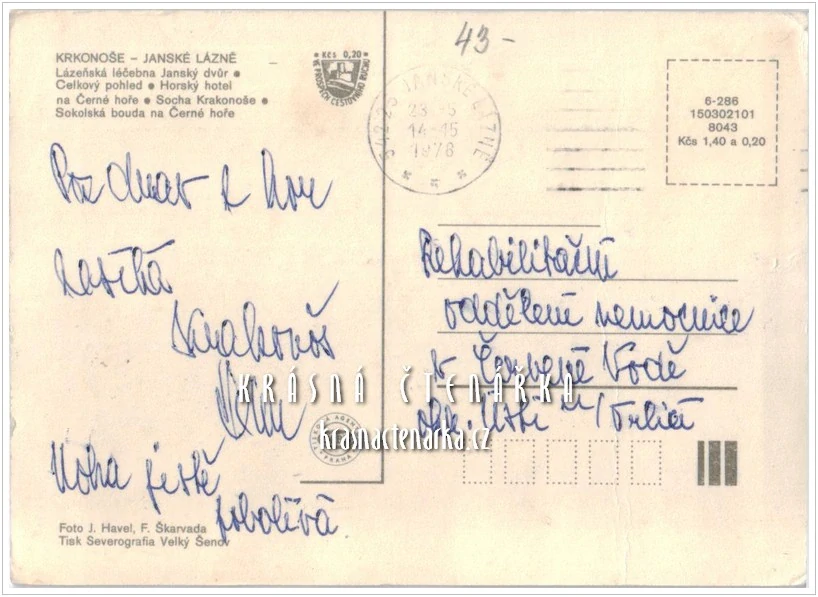 43-
KRKONOŠE – JANSKÉ LÁZNĚ
Lázeňská léčebna Janský dvůr •
Celkový pohled • Horský hotel
na Černé hoře • Socha Krakonoše •
Sokolská bouda na Černé hoře
Kčs 0,20
VE PROSPĚCH CESTOVNÍHO RUCHU
542 25 JANSKÉ LÁZNĚ
23.-5
14-15
1978
6-286
150302101
8043
Kčs 1,40 a 0,20
Pozdrav z hor
zasílá
Krakonoš
Noha ještě
pobolívá.
Rehabilitační
oddělení nemocnice
v Červené Vodě
okr. Ústí n/Orlicí
KRÁSNÁ ČTENÁŘKA
krasnactenarka.cz
PRAHA
Foto J. Havel, F. Škarvada
Tisk Severografia Velký Šenov